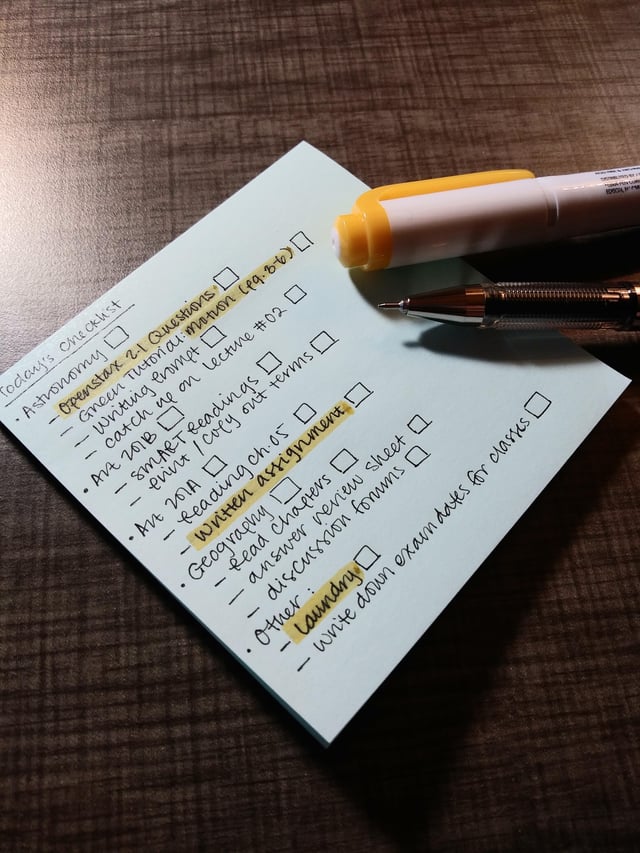 Today's Checklist
• Astronomy
- Openstax 2.1 Questions
- Green Tutorial: motion (pg. 8-6)
- Writing Prompt
- catch up on lecture #02
• Art 201B
- SmART Readings
- print / copy out terms
• Art 201A
- Reading Ch. 05
- Written assignment
• Geography
- Read Chapters
- answer review sheet
- discussion forums
• Other:
- Laundry
- Write down exam dates for classes